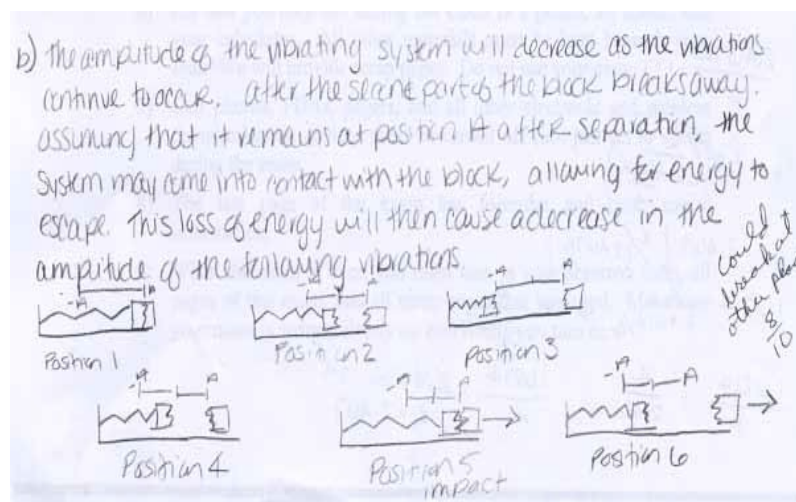 b) The amplitude of the vibrating system will decrease as the vibrations
continue to occur. after the second part of the block breaks away.
assuming that it remains at position A after separation, the
system may come into contact with the block, allowing for energy to
escape. This loss of energy will then cause a decrease in the
amplitude of the following vibrations
could
break at
other
8/10
-A A
Position 1
-A A
Position 2
-A A
Position 3
-A A
Position 4
-A A
Position 5
impact
-A A
Position 6